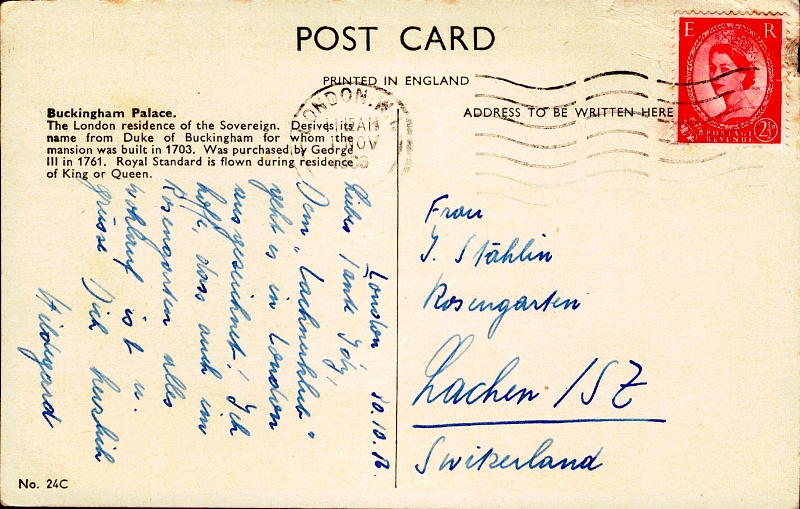 POST CARD
PRINTED IN ENGLAND
ADDRESS TO BE WRITTEN HERE
E R
POSTAGE
REVENUE
2½
LONDON. W.1
15 AM
NOV
Buckingham Palace.
The London residence of the Sovereign. Derives its
name from Duke of Buckingham for whom the
mansion was built in 1703. Was purchased by George
III in 1761. Royal Standard is flown during residence
of King or Queen.
London 30.10.
Liebe Tante Idy,
Dem "Lachnerklub"
geht es in London
ausgezeichnet! Ich
hoffe, dass auch im
Rosengarten alles
wohlauf ist u.
grüsse Dich herzlich
Hildegard
Frau
J. Stählin
Rosengarten
Lachen / SZ
Switzerland
No. 24C